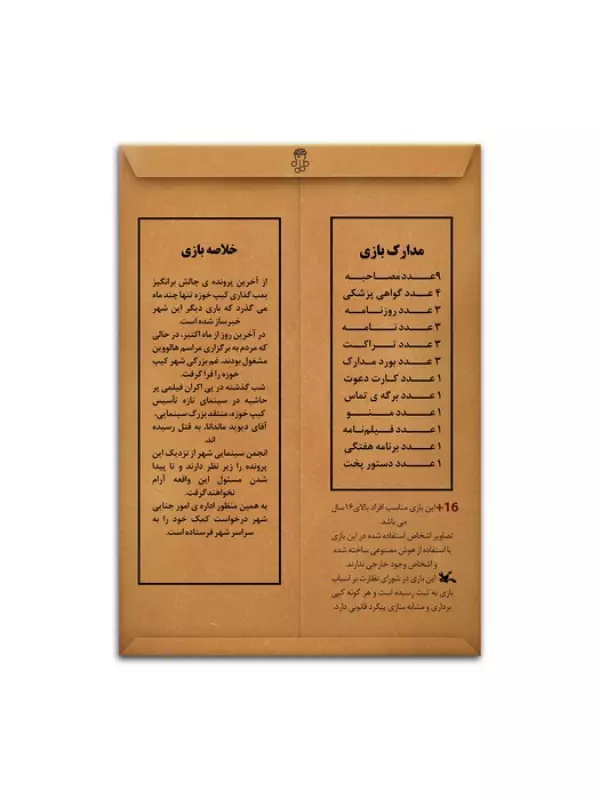 مدارک بازی
۹ عـدد مصـاحبـه
۴ عـدد گواهی پزشکی
۳ عـدد روزنـامـه
۳ عـدد نـــامـــه
۳ عـدد تـراکـت
۳ عـدد بورد مدارک
۱ عـدد کارت دعوت
۱ عـدد برگه ی تماس
۱ عـدد مـنـو
۱ عـدد فیـلم‌نامه
۱ عـدد برنامه هفتگی
۱ عـدد دستور پخت
+16 این بازی مناسب افراد بالای ۱۶ سال
می باشد.
تصاویر اشخاص استفاده شده در این بازی
با استفاده از هوش مصنوعی ساخته شده
و اشخاص وجود خارجی ندارند.
این بازی در شورای نظارت بر اسباب
بازی به ثبت رسیده است و هر گونه کپی
برداری و مشابه سازی پیگرد قانونی دارد.
خلاصه بازی
از آخرین پرونده ی چالش برانگیز
بمب گذاری کیپ خوزه تنها چند ماه
می گذرد که باری دیگر این شهر
خبرساز شده است.
در آخرین روز از ماه اکتبر، در حالی
که مردم به برگزاری مراسم هالووین
مشغول بودند، غم بزرگی شهر کیپ
خوزه را فرا گرفت.
شب گذشته در پی اکران فیلمی پر
حاشیه در سینمای تازه تأسیس
کیپ خوزه، منتقد بزرگ سینمایی،
آقای دیوید ماندانا، به قتل رسیده
اند.
انجمن سینمایی شهر از نزدیک این
پرونده را زیر نظر دارند و تا پیدا
شدن مسئول این واقعه آرام
نخواهند گرفت.
به همین منظور اداره ی امور جنایی
شهر درخواست کمک خود را به
سراسر شهر فرستاده است.